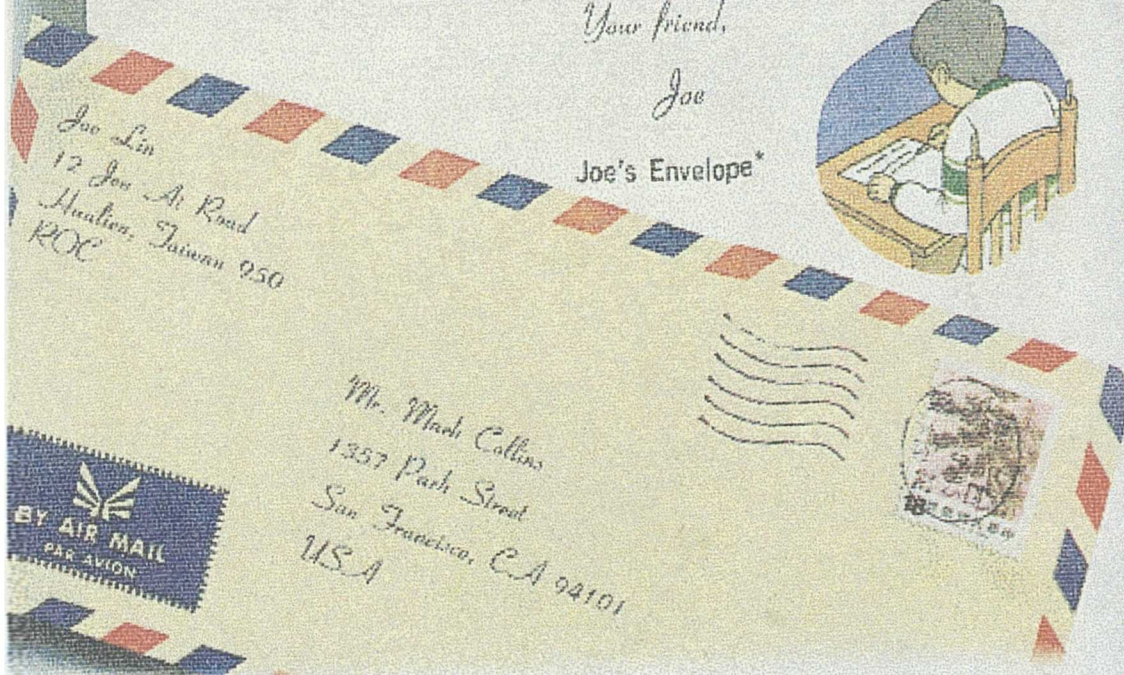 Your friend,
Joe
Joe's Envelope*
Joe Lin
12 Jen-Ai Road
Hualien, Taiwan 950
ROC
Mr. Mark Collins
1357 Park Street
San Francisco, CA 94101
USA
BY AIR MAIL
PAR AVION